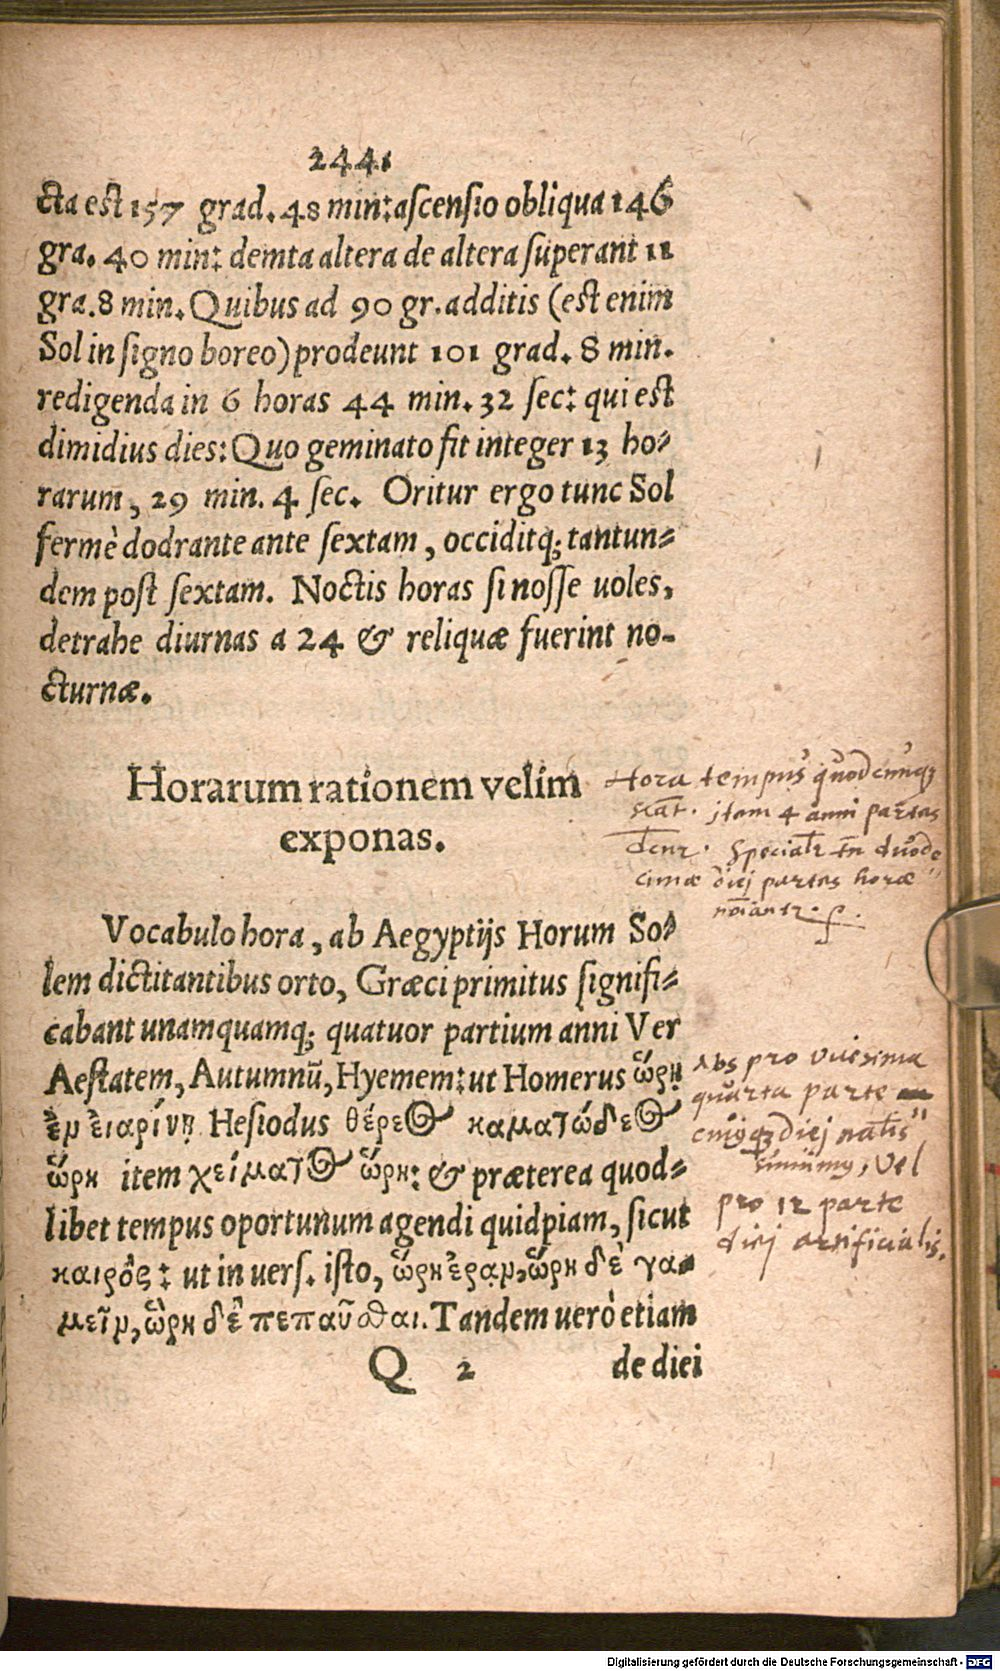 244.
cta est 157 grad. 48 min: ascensio obliqua 146
gra. 40 min: demta altera de altera superant 11
gra. 8 min. Quibus ad 90 gr. additis (est enim
Sol in signo boreo) prodeunt 101 grad. 8 min.
redigenda in 6 horas 44 min. 32 sec: qui est
dimidius dies: Quo geminato fit integer 13 ho-
rarum, 29 min. 4 sec. Oritur ergo tunc Sol
fermè dodrante ante sextam, occiditq; tantun-
dem post sextam. Noctis horas si nosse uoles,
detrahe diurnas a 24 & reliquæ fuerint no-
cturnæ.
Horarum rationem velim
exponas.
Hora tempus quodcunq;
item 4 anni partes
duode
cimæ diei partes horæ
Vocabulo hora, ab Aegyptijs Horum So-
lem dictitantibus orto, Græci primitus signifi-
cabant unamquamq; quatuor partium anni Ver
Aestatem, Autumnũ, Hyemem: ut Homerus ὥρῃ
ἐν εἰαρίνῃ Hesiodus θέρεος καματώδεος
ὥρη item χείματος ὥρη: & præterea quod-
libet tempus oportunum agendi quidpiam, sicut
καιρὸς: ut in uers. isto, ὥρη ἐρᾳν, ὥρη δὲ γα-
μεῖν, ὥρη δὲ πεπαῦσθαι. Tandem uerò etiam
pro vicesima
quarta parte
diei
vel
pro 12 parte
diei artificialis.
Q 2 de diei
Digitalisierung gefördert durch die Deutsche Forschungsgemeinschaft - DFG